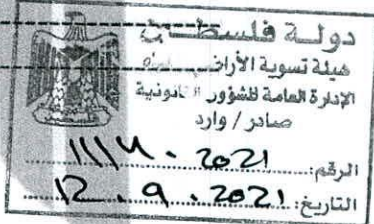 دولة فلسطين
هيئة تسوية الأراضي
الإدارة العامة للشؤون القانونية
صادر / وارد
الرقم: 2021
التاريخ: 12 . 9 . 2021